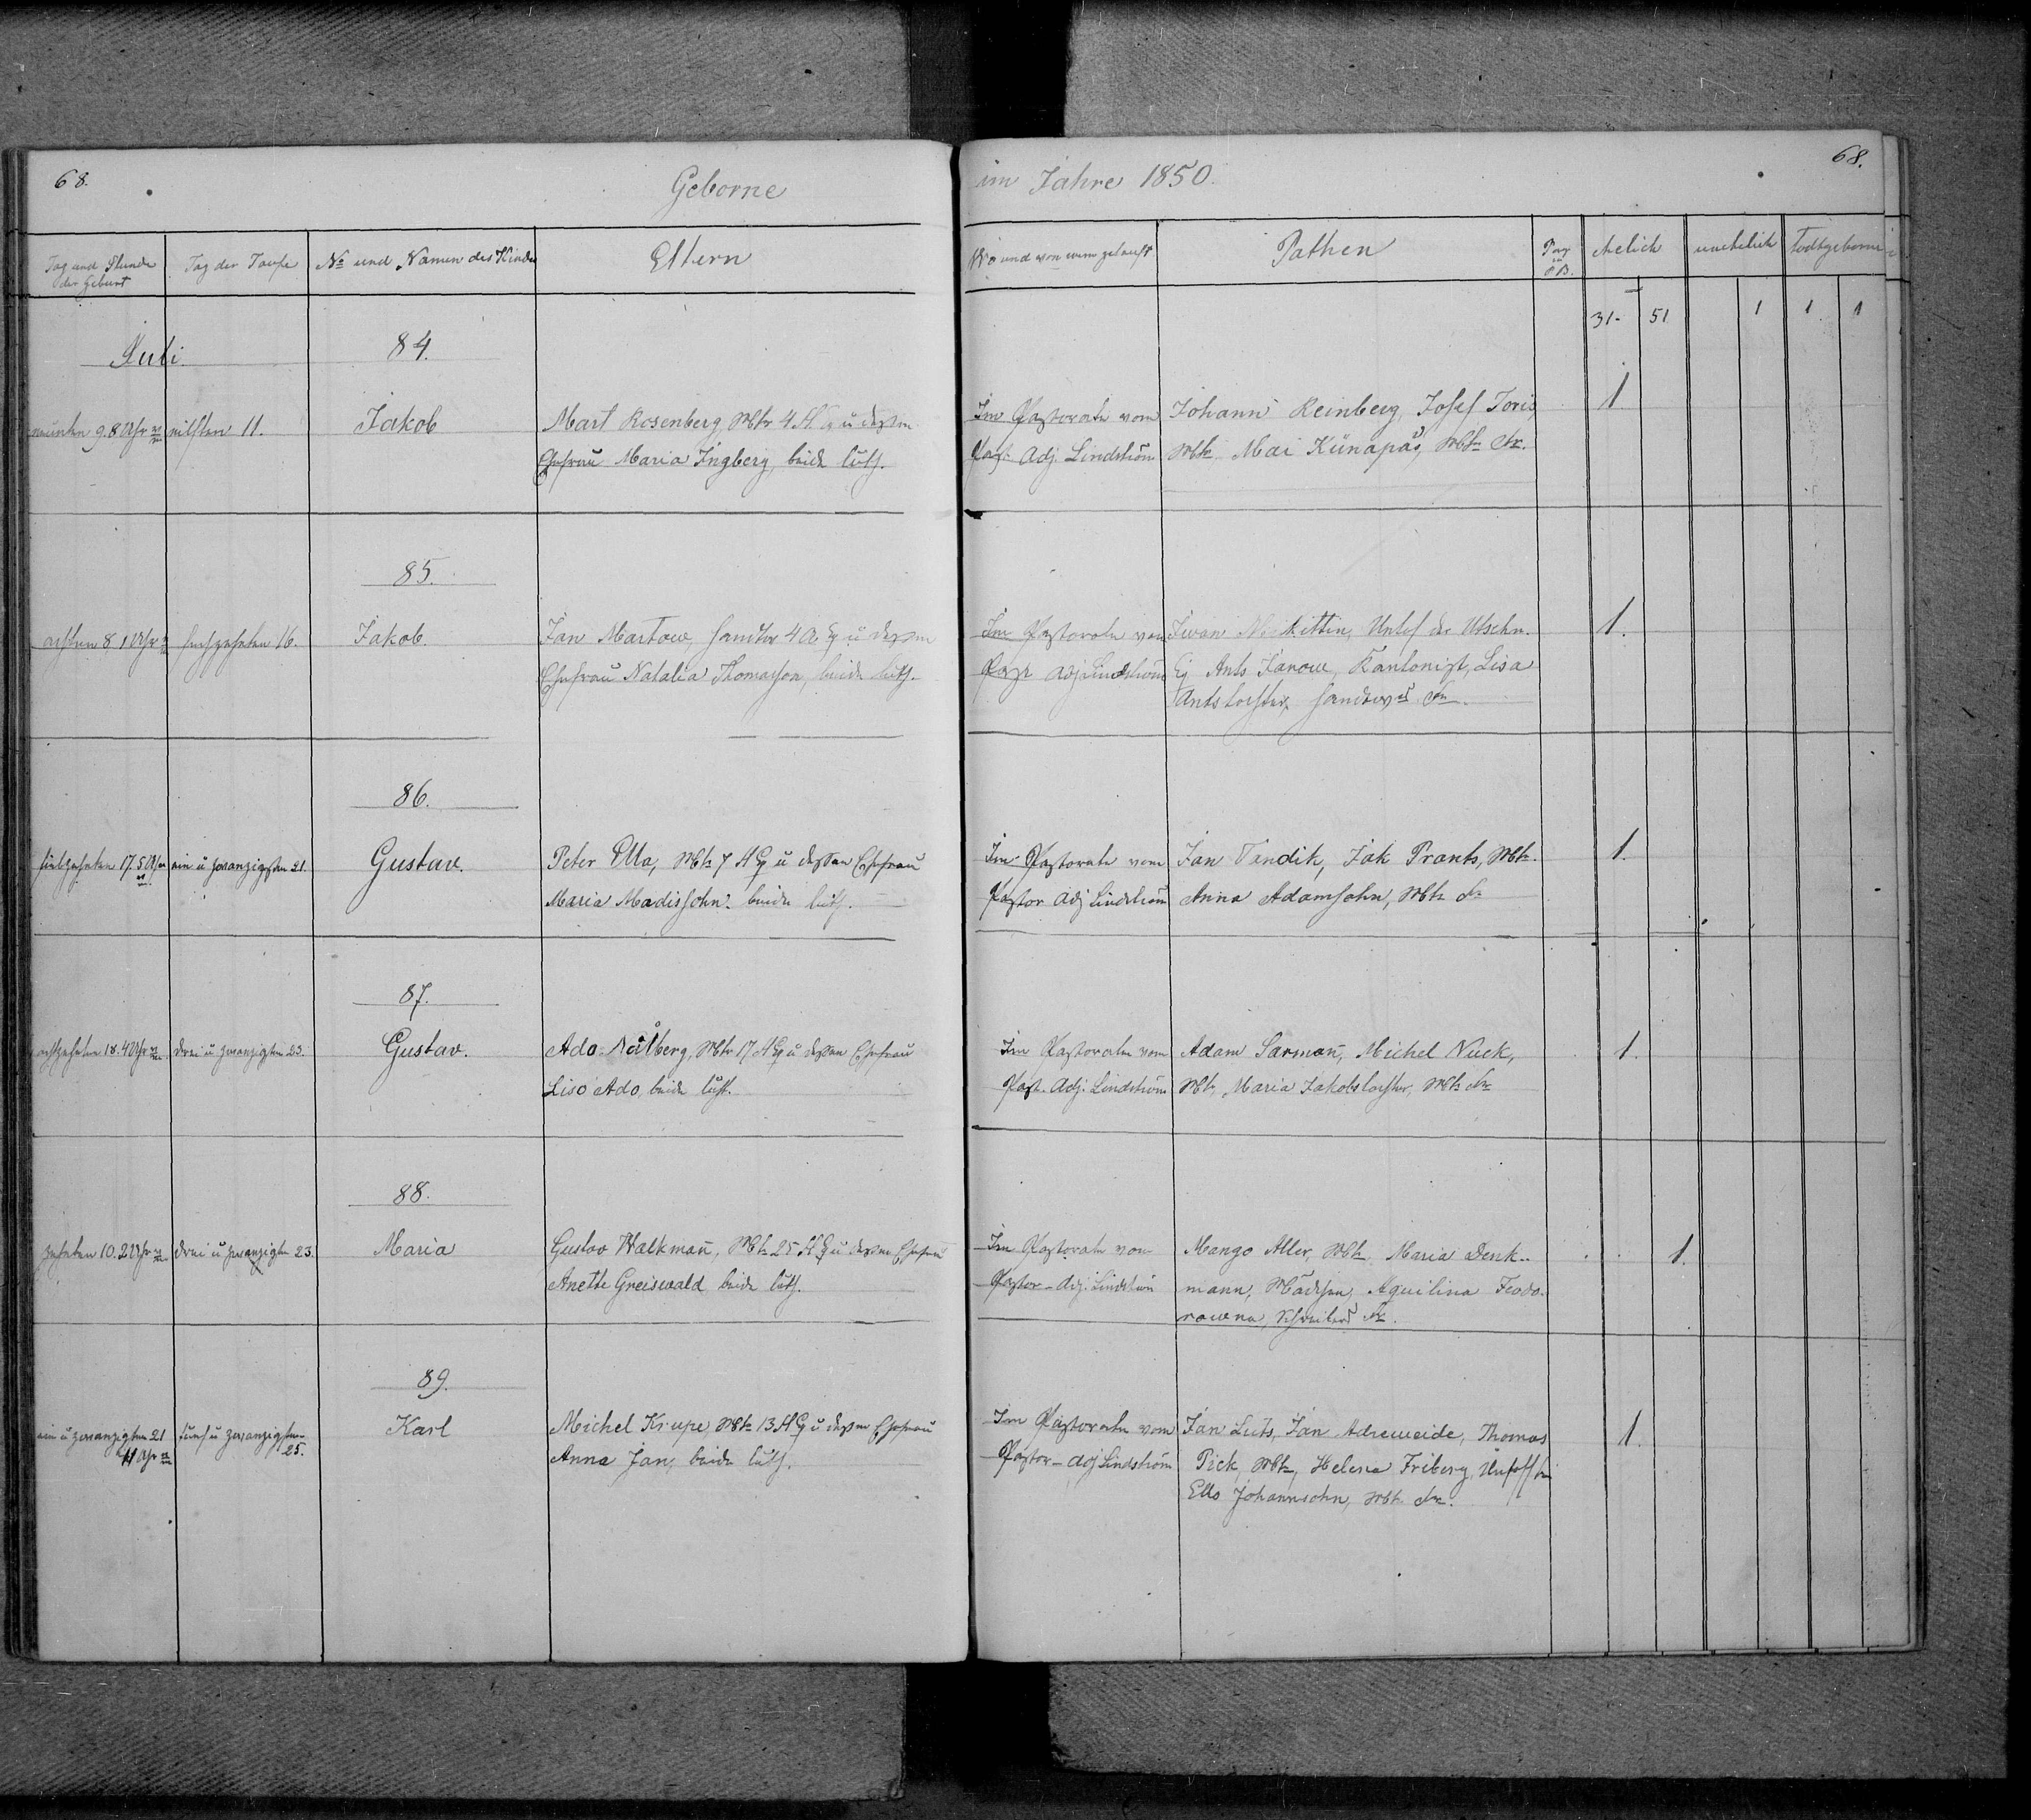 68.
Geborne
im Jahre 1850.
68.
Tag und Stunde der Geburt
Tag der Taufe
No und Namen des Kindes
Eltern
Wo und von wem getauft
Pathen
ehelich
unehelich
Todtgeborne
31- 51 1 1 1
Juli
84.
neunten 9. 8 Uhr
eilften 11.
Jakob
Mart Rosenberg Mtr 4 u dessen
Ehefrau Maria Ingberg, beide luth.
Im Pastorate vom
Past. Adj. Lindström
Johann Reinberg, Josef Toris,
Mai Künapas,
1
85.
achten 8 1 Uhr
sechzehnten 16.
Jakob.
Jan Martow, 4 u dessen
Ehefrau Natalia Thomasson, beide luth.
Im Pastorate vom
Past Adj Lindström
Iwan Nikittin, der
Ants Janow, Kantonist, Lisa
Antstochter,
1.
86.
siebzehnten 17. 5 Uhr
ein u zwanzigsten 21.
Gustav.
Peter Ella, Mtr 7 u dessen Ehefrau
Maria Madissohn beide luth.
Im Pastorate vom
Pastor Adj Lindström
Jan Tandik, Jak Prants, Mtr.
Anna Adamsohn,
1.
87.
achtzehnten 18. 4 Uhr
drei u zwanzigsten 23.
Gustav.
Ado Nålberg, Mtr 17 u dessen Ehefrau
Liso Ado, beide luth.
Im Pastorate vom
Past. Adj. Lindström
Adam Sarmañ, Michel Nuck,
Maria Jakobstochter,
1.
88.
zehnten 10. 2 Uhr
drei u zwanzigsten 23.
Maria
Gustav Walkmañ, Mtr 25 u dessen Ehefrau
Anette Greiswald beide luth.
Im Pastorate vom
Pastor-Adj. Lindström
Mango Aller, Maria Denk-
mann, Mädchen, Aquilina Feodo-
rowna, Schreibers
1.
89.
ein u zwanzigsten 21
11 Uhr
fünf u zwanzigsten
25.
Karl
Michel Krupe, Mtr 13 u dessen Ehefrau
Anna Jan, beide luth.
Im Pastorate vom
Pastor-Adj Lindström
Jan Luts, Jan Adreweide, Thomas
Pick, Helena Friberg,
Ello Johannsohn,
1.